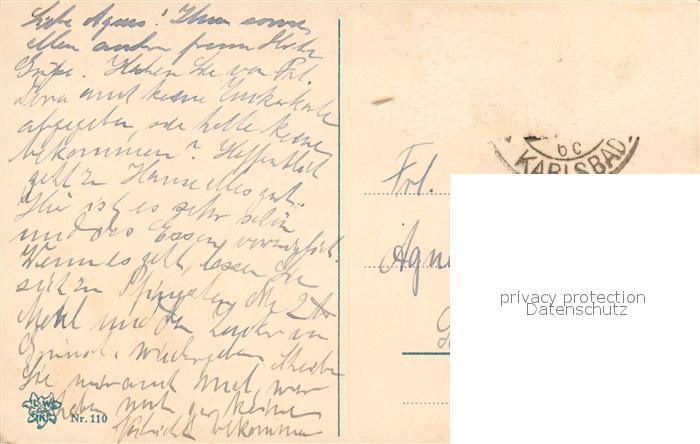 Liebe Agnes! Ihnen sowie
allen andern freundliche
Grüße. Haben Sie von Frl.
Dora auch keine Zuckerkarte
abgegeben, oder hätte keine
bekommen? Hoffentlich
geht zu Hause alles gut.
Hier ist es sehr schön
und das Essen vorzüglich.
Wenn es geht, lassen Sie
sich zu Pfingsten die 2 ℔
Mehl und den Zucker von
wiedergeben. Schreiben
Sie mir auch mal, wir
haben noch gar keine
Nachricht bekommen
Nr. 110
6c
KARLSBAD
Frl.
Agne
privacy protection
Datenschutz